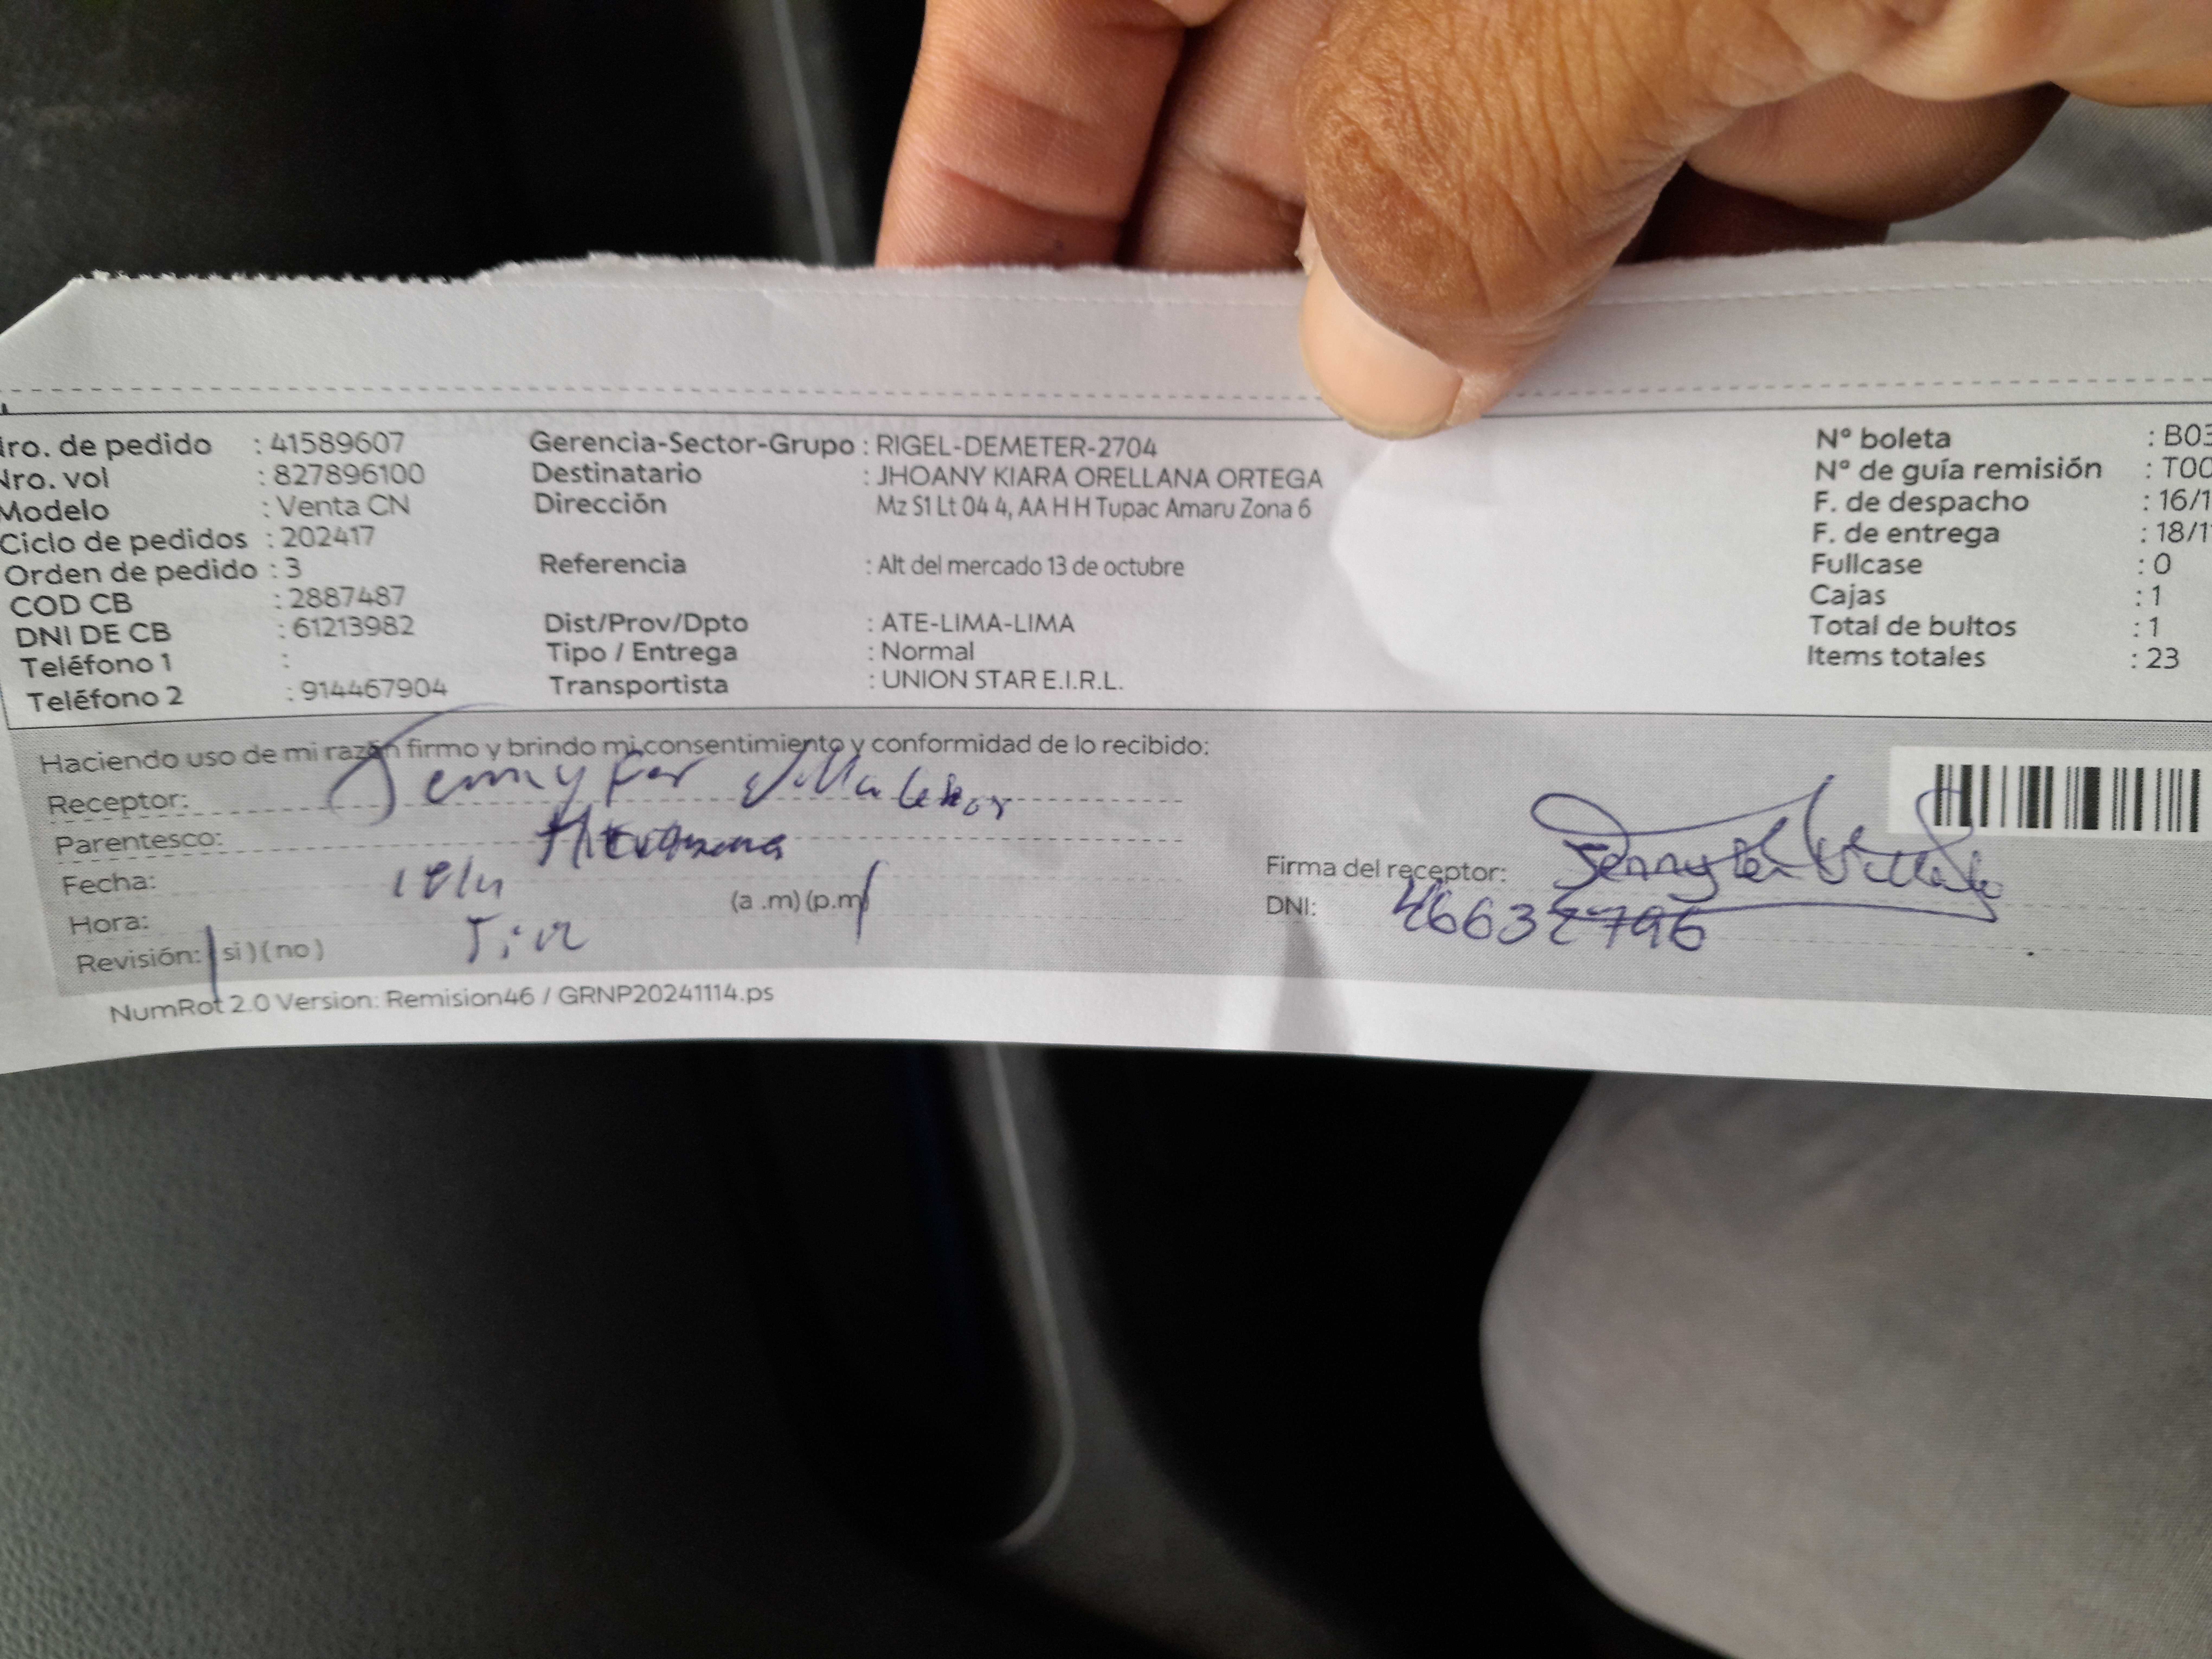 Nro. de pedido : 41589607
Nro. vol : 827896100
Modelo : Venta CN
Ciclo de pedidos : 202417
Orden de pedido : 3
COD CB : 2887487
DNI DE CB : 61213982
Teléfono 1 :
Teléfono 2 : 914467904
Gerencia-Sector-Grupo : RIGEL-DEMETER-2704
Destinatario : JHOANY KIARA ORELLANA ORTEGA
Dirección Mz S1 Lt 04 4, AA H H Tupac Amaru Zona 6
Referencia : Alt del mercado 13 de octubre
Dist/Prov/Dpto : ATE-LIMA-LIMA
Tipo / Entrega : Normal
Transportista : UNION STAR E.I.R.L.
Nº boleta : B03
Nº de guía remisión : T00
F. de despacho : 16/1
F. de entrega : 18/1
Fullcase : 0
Cajas : 1
Total de bultos : 1
Items totales : 23
Haciendo uso de mi razón firmo y brindo mi consentimiento y conformidad de lo recibido:
Receptor: Jennyfer
Parentesco: Hermana
Fecha:
Hora: (a .m) (p.m)
Revisión: ( si ) ( no )
Firma del receptor:
DNI: 46632796
NumRot 2.0 Version: Remision46 / GRNP20241114.ps